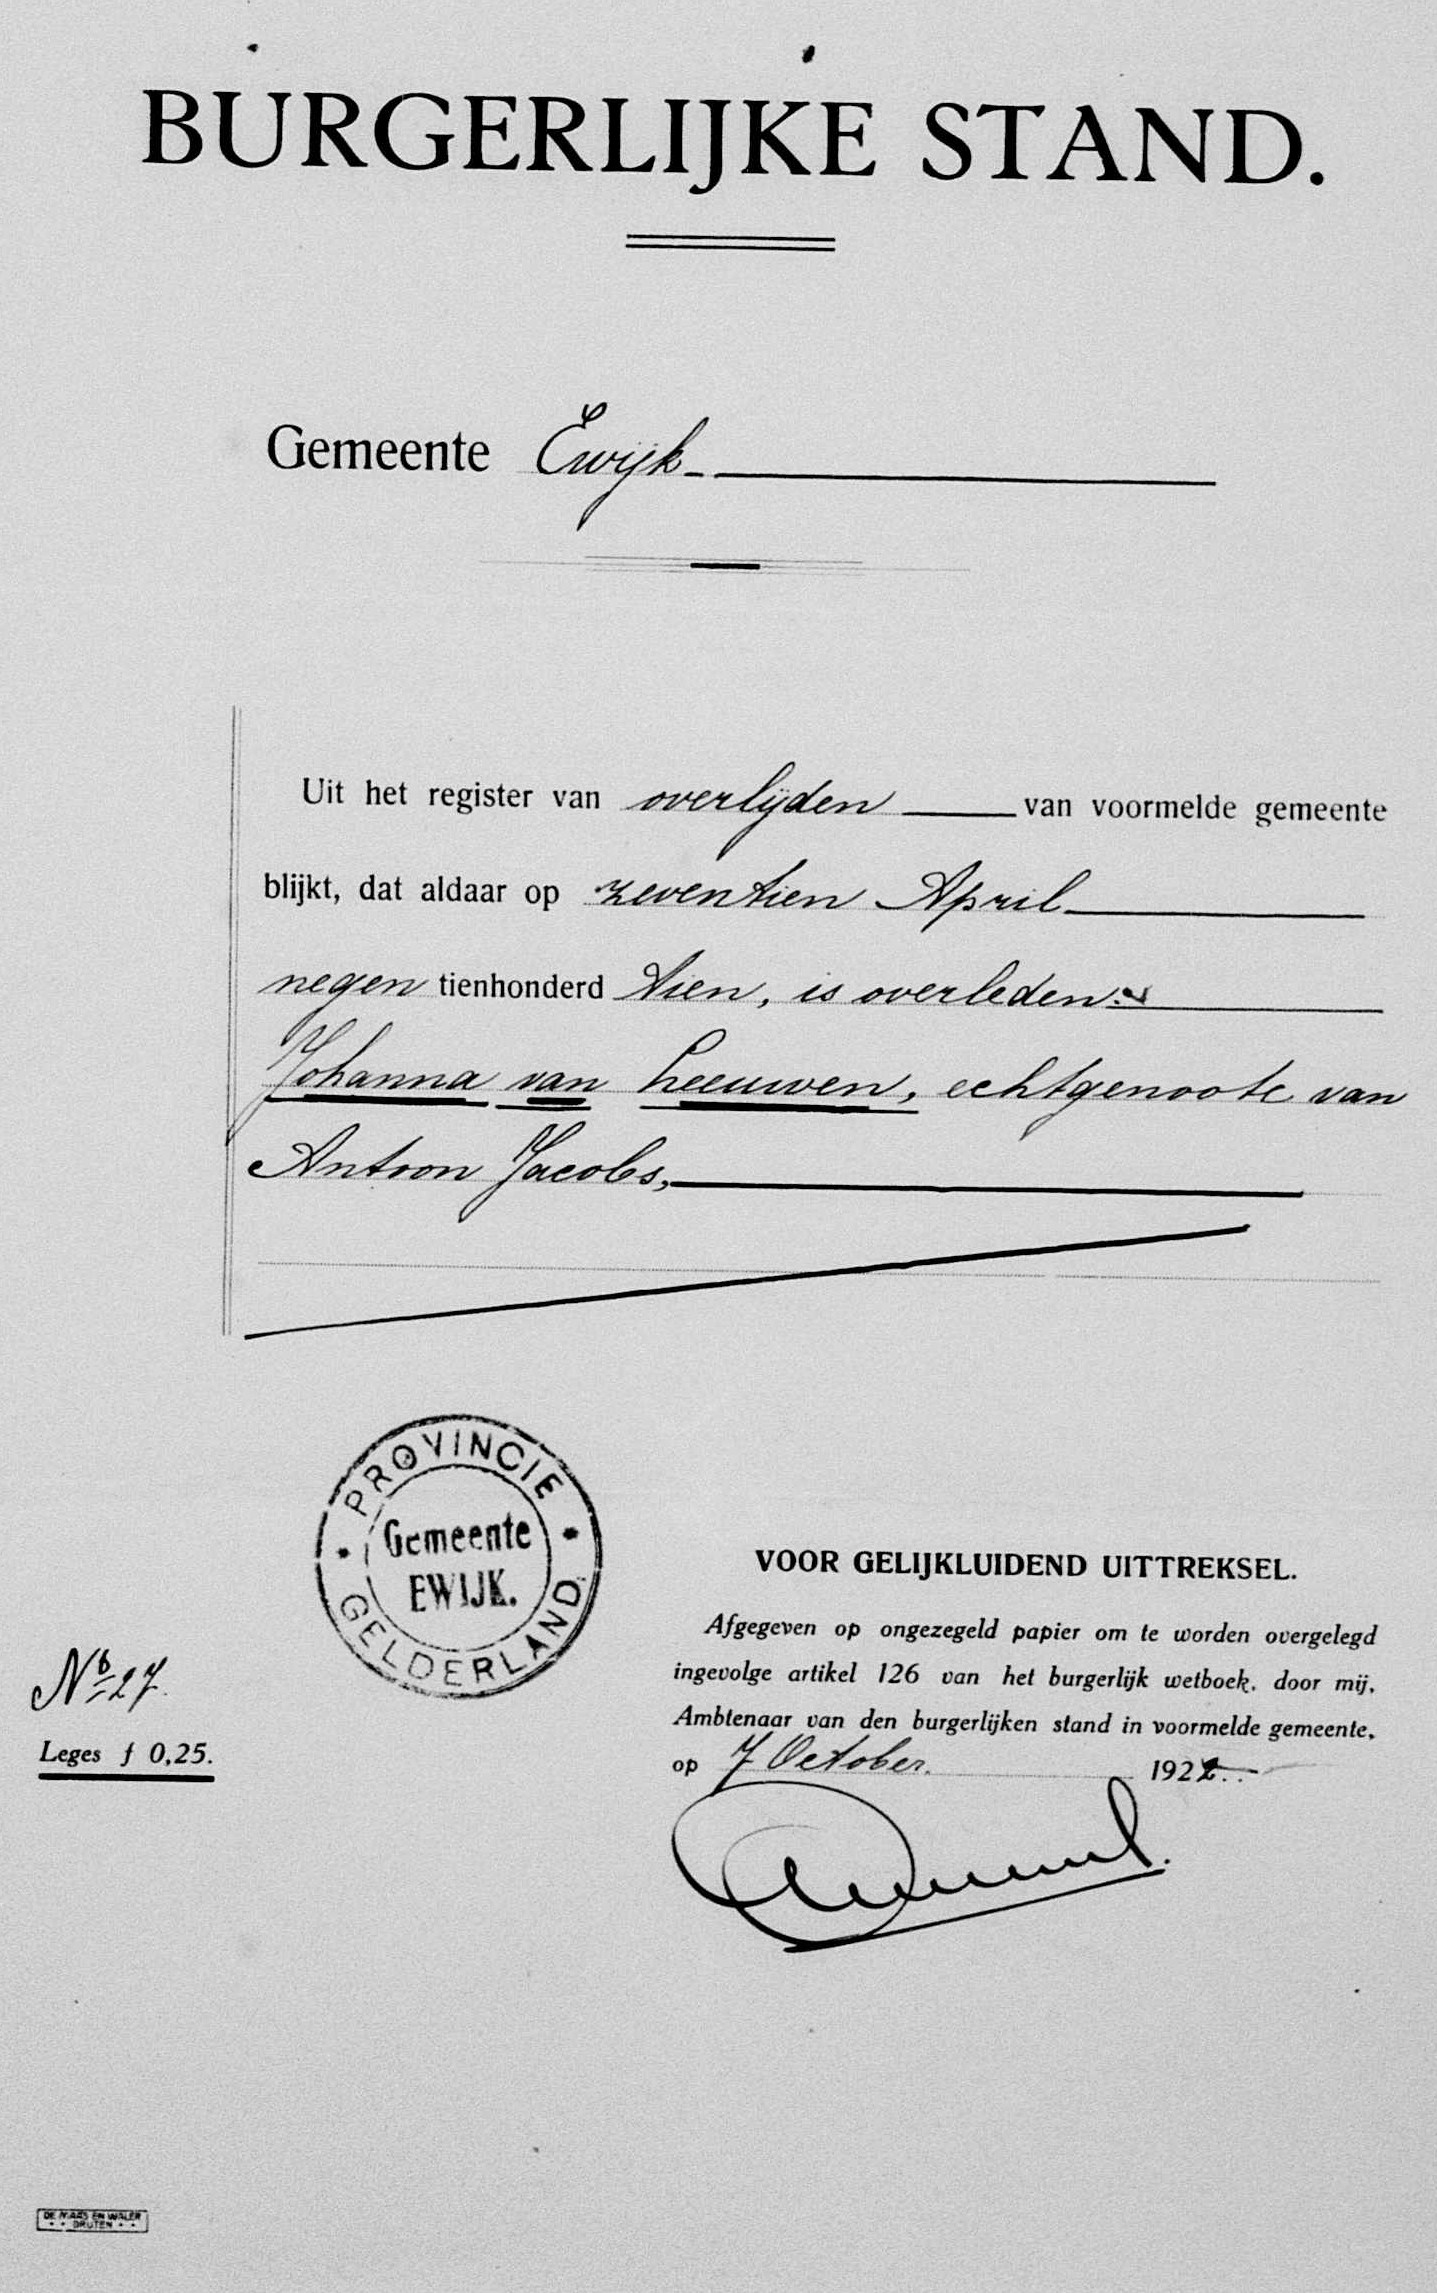 BURGERLIJKE STAND.
Gemeente Ewijk
Uit het register van overlijden van voormelde gemeente
blijkt, dat aldaar op zeventien April
negen tienhonderd tien, is overleden:
Johanna van Leeuwen, echtgenoote van
Antoon Jacobs,
PROVINCIE
Gemeente
EWIJK.
GELDERLAND
VOOR GELIJKLUIDEND UITTREKSEL.
Afgegeven op ongezegeld papier om te worden overgelegd
ingevolge artikel 126 van het burgerlijk wetboek, door mij,
Ambtenaar van den burgerlijken stand in voormelde gemeente,
op 7 October. 1922.
No 27.
Leges f 0,25.
DE MAAS EN WALER
DRUTEN